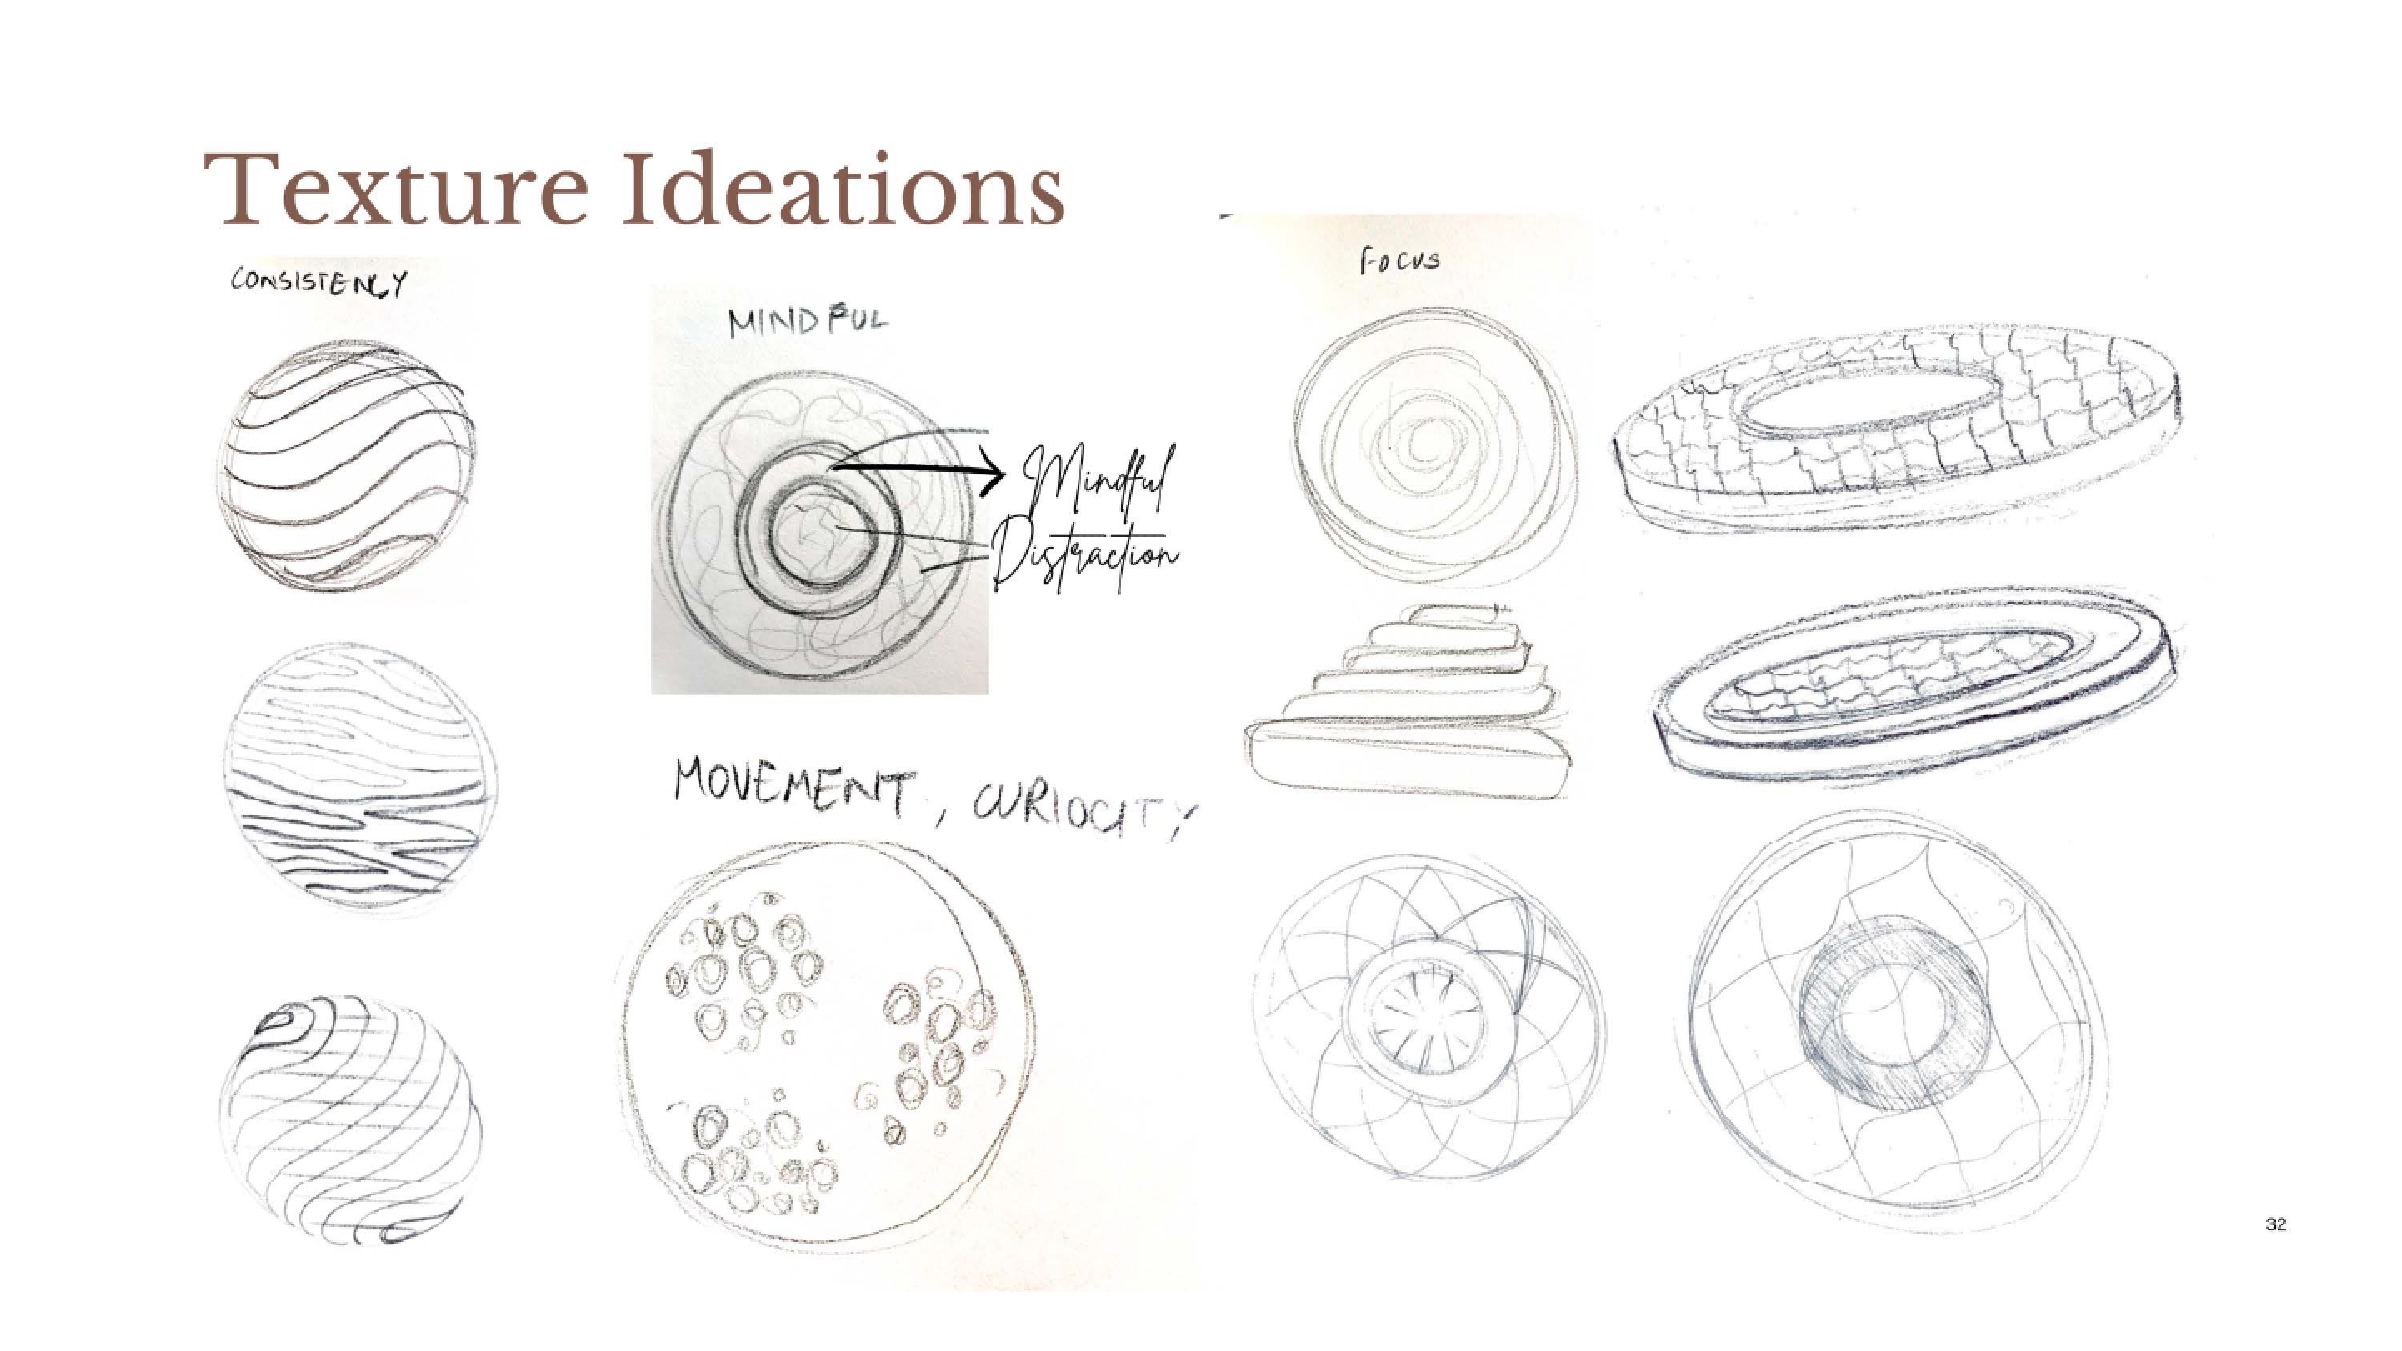 Texture Ideations
CONSISTENCY
MINDFUL
Mindful
Distraction
MOVEMENT, CURIOCITY
FOCUS
32